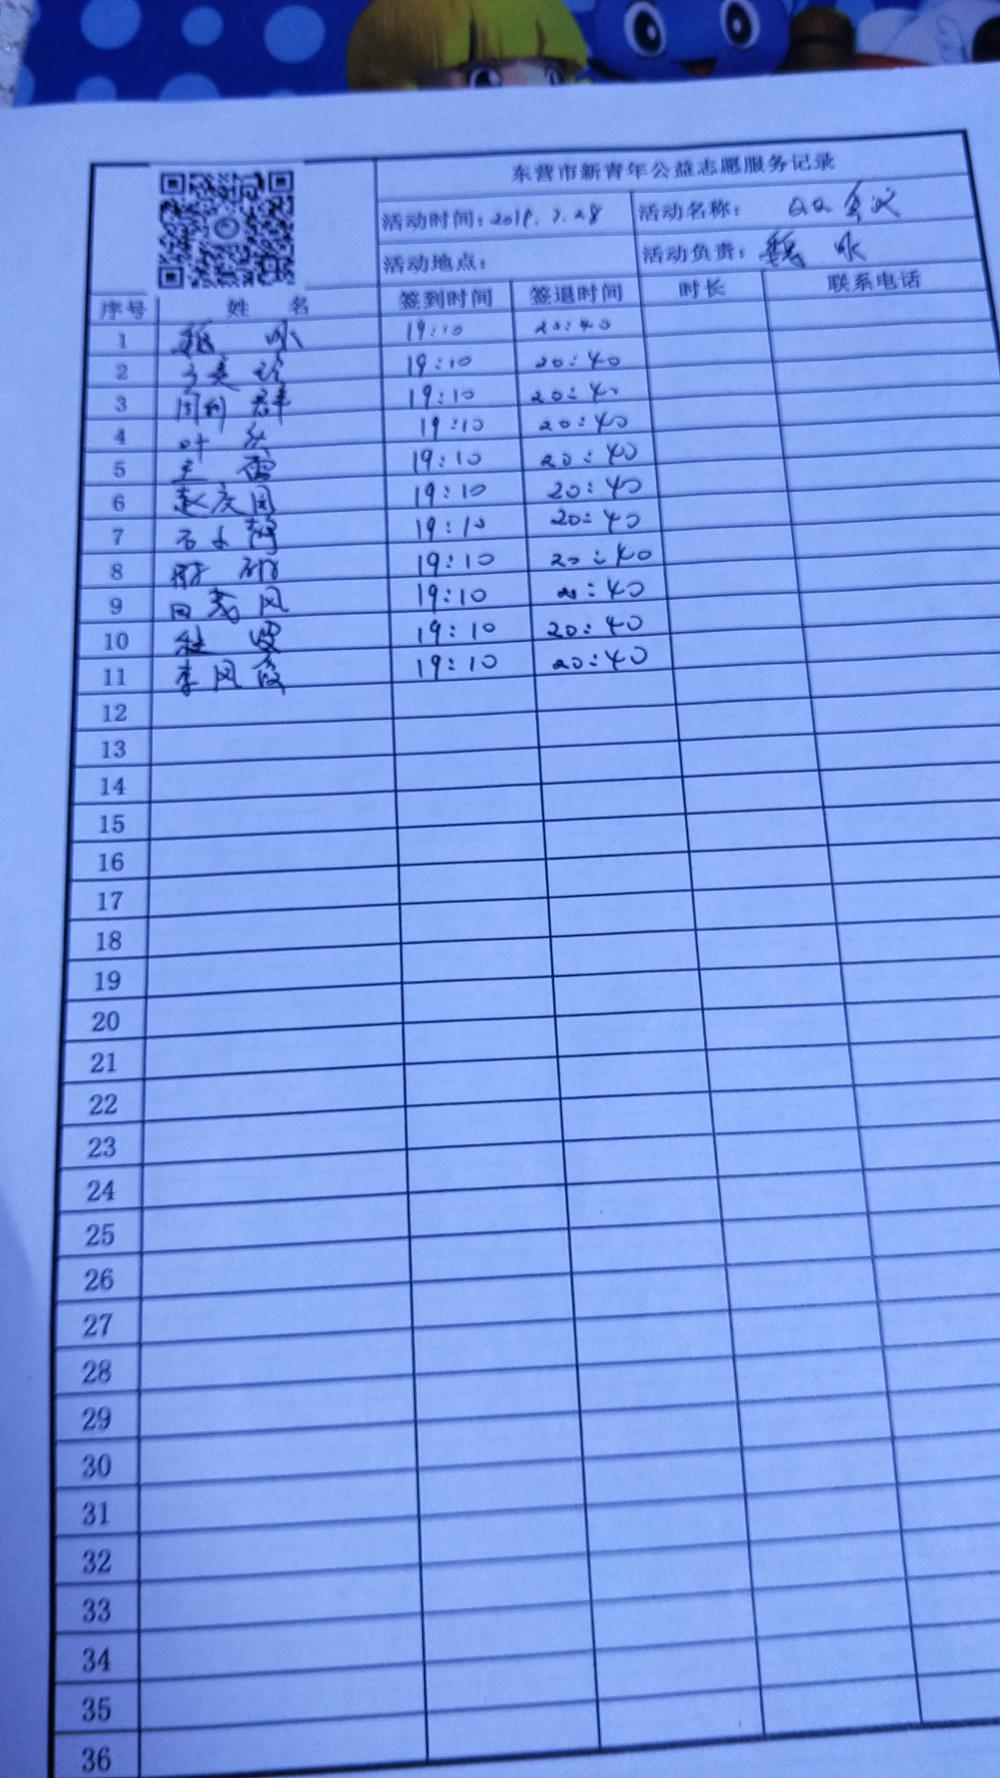 东营市新青年公益志愿服务记录
活动时间：2019.7.28 活动名称：QQ会议
活动地点： 活动负责：魏 冰
序号 姓 名 签到时间 签退时间 时长 联系电话
1 魏 冰 19:10 20:40
2 19:10 20:40
3 周利群 19:10 20:40
4 叶 19:10 20:40
5 王 雷 19:10 20:40
6 赵庆国 19:10 20:40
7 石 19:10 20:40
8 19:10 20:40
9 田茂风 19:10 20:40
10 杜 雯 19:10 20:40
11 李风霞 19:10 20:40
12
13
14
15
16
17
18
19
20
21
22
23
24
25
26
27
28
29
30
31
32
33
34
35
36